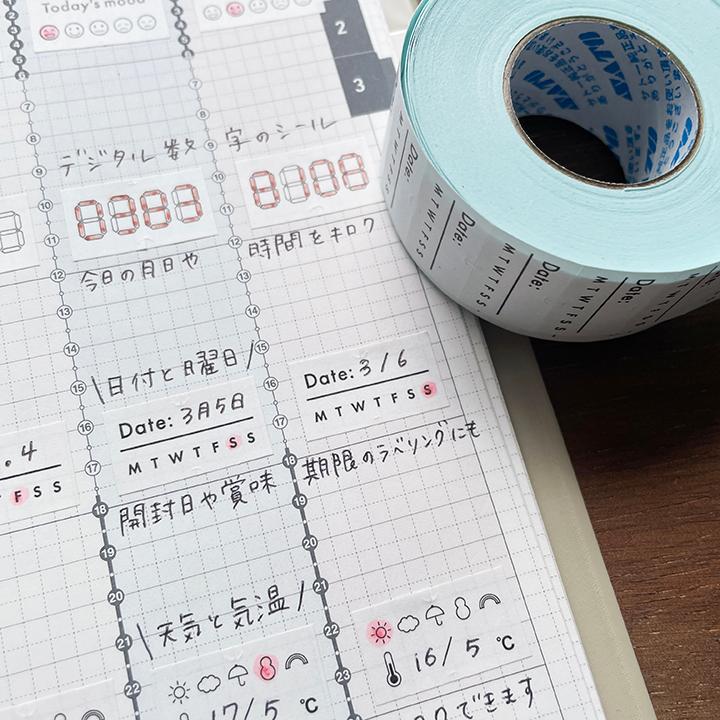 Today's mood
2
3
デジタル数字のシール
0383
8108
今日の月日や
時間をキロク
\日付と曜日/
Date: 3月5日
M T W T F S S
Date: 3/6
M T W T F S S
. 4
F S S
開封日や賞味
期限のラベリングにも
\天気と気温/
17/5 ℃
16/5 ℃
できます
7
8
9
10
11
12
13
14
15
16
17
18
19
20
21
22
23
Date:
M T W T F S S
Date:
M T W T F S S
Date:
M T W T F S S
Date: